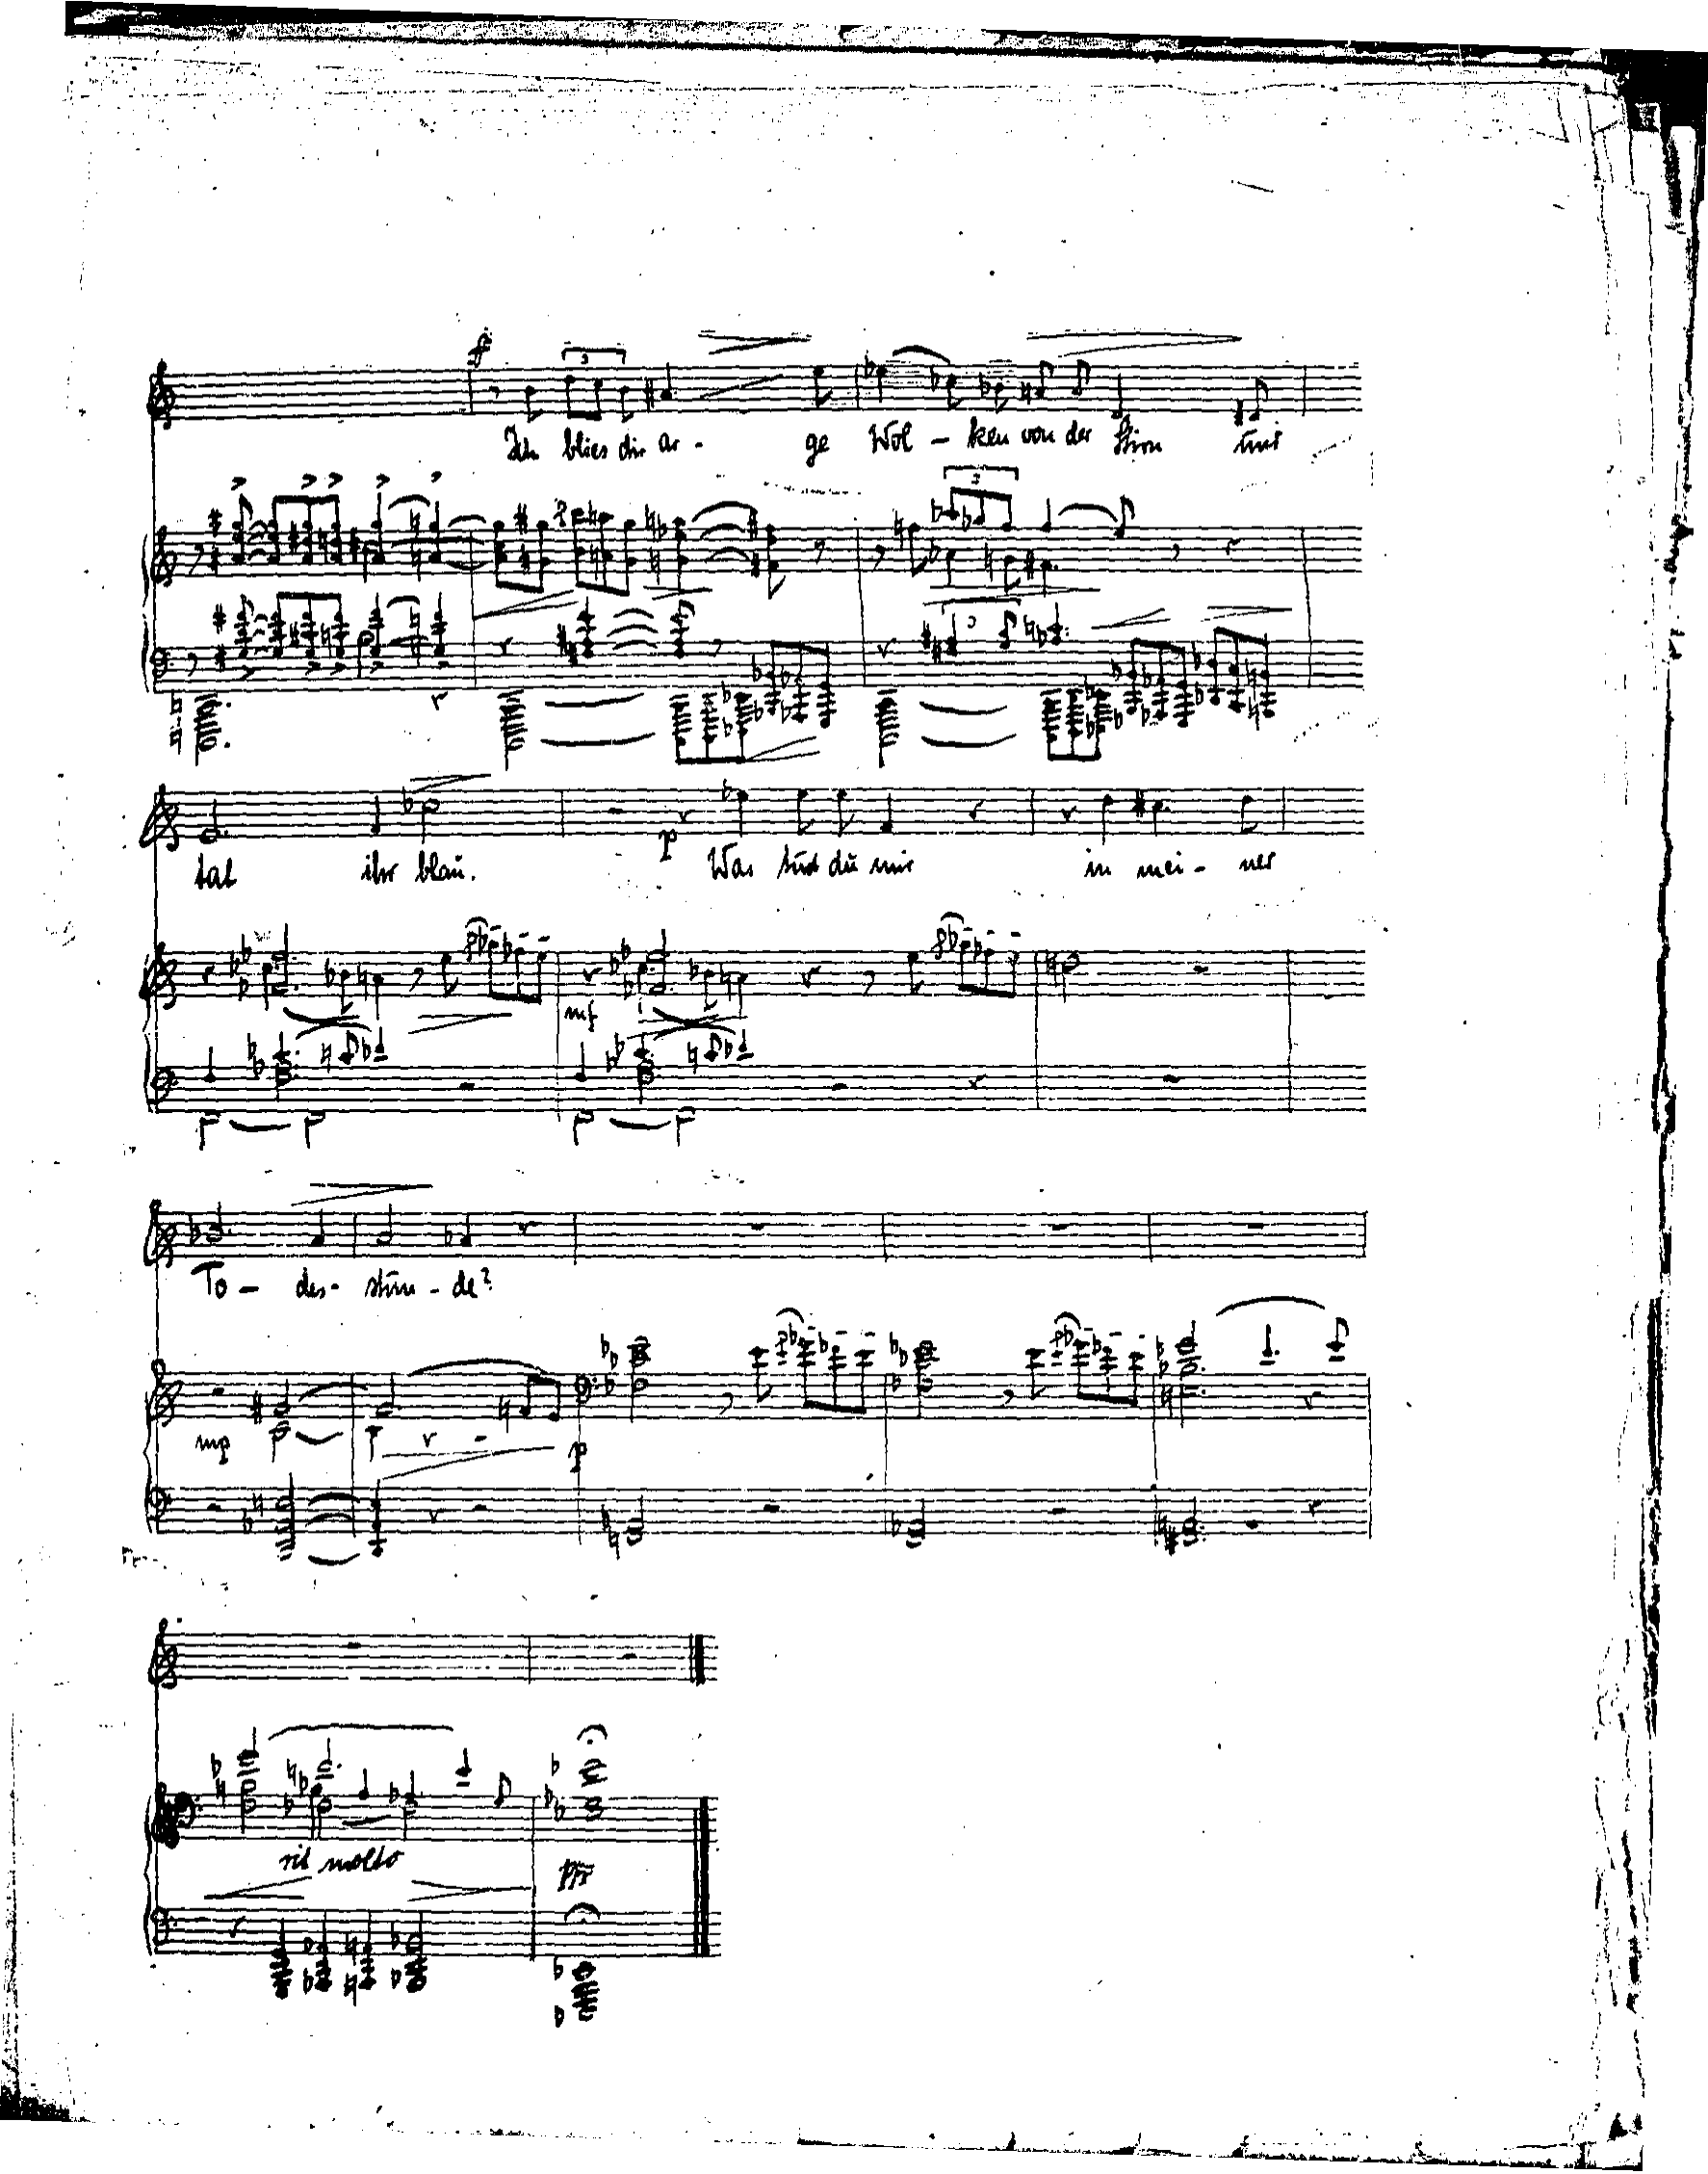 f
3
Ich blies dir ar - ge Wol - ken von der Stirn und
3
3
tat ihr blau. Was tust du mir in mei - ner
p
mf
To - des - stun - de?
mp p
rit molto
ppp